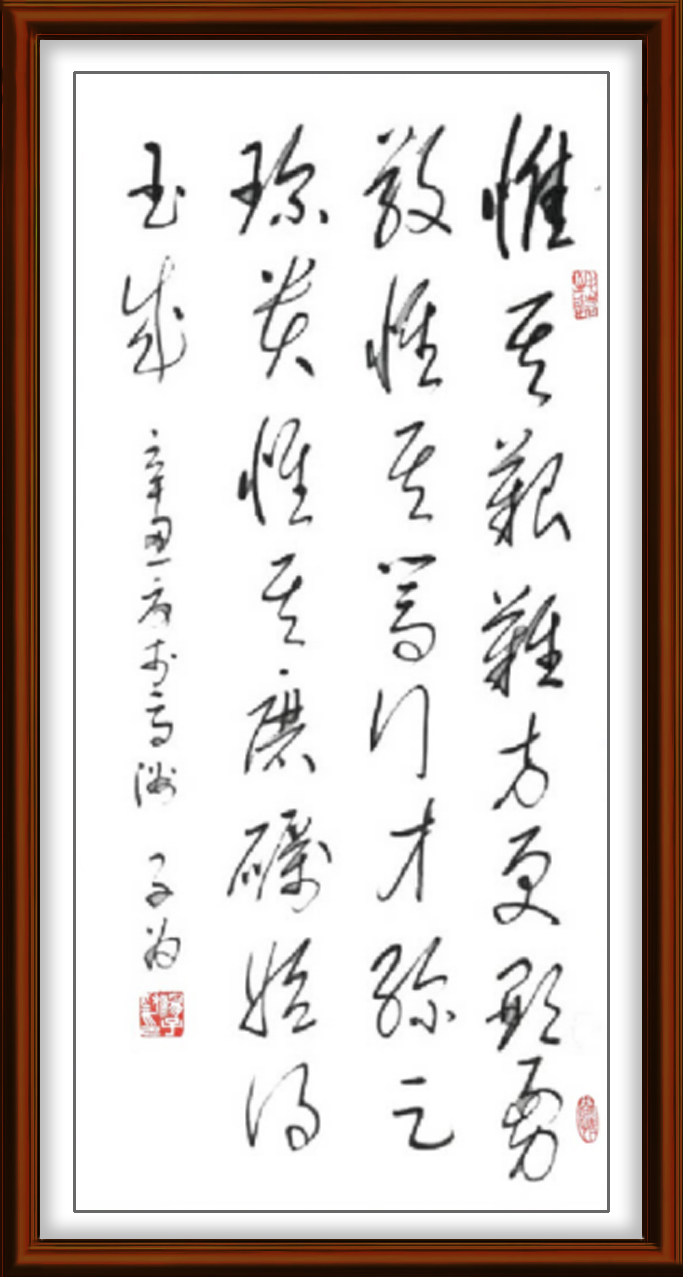 惟其艱難方更顯勇
毅惟其篤行才弥足
珍貴惟其磨礪始得
玉成
辛丑 子为